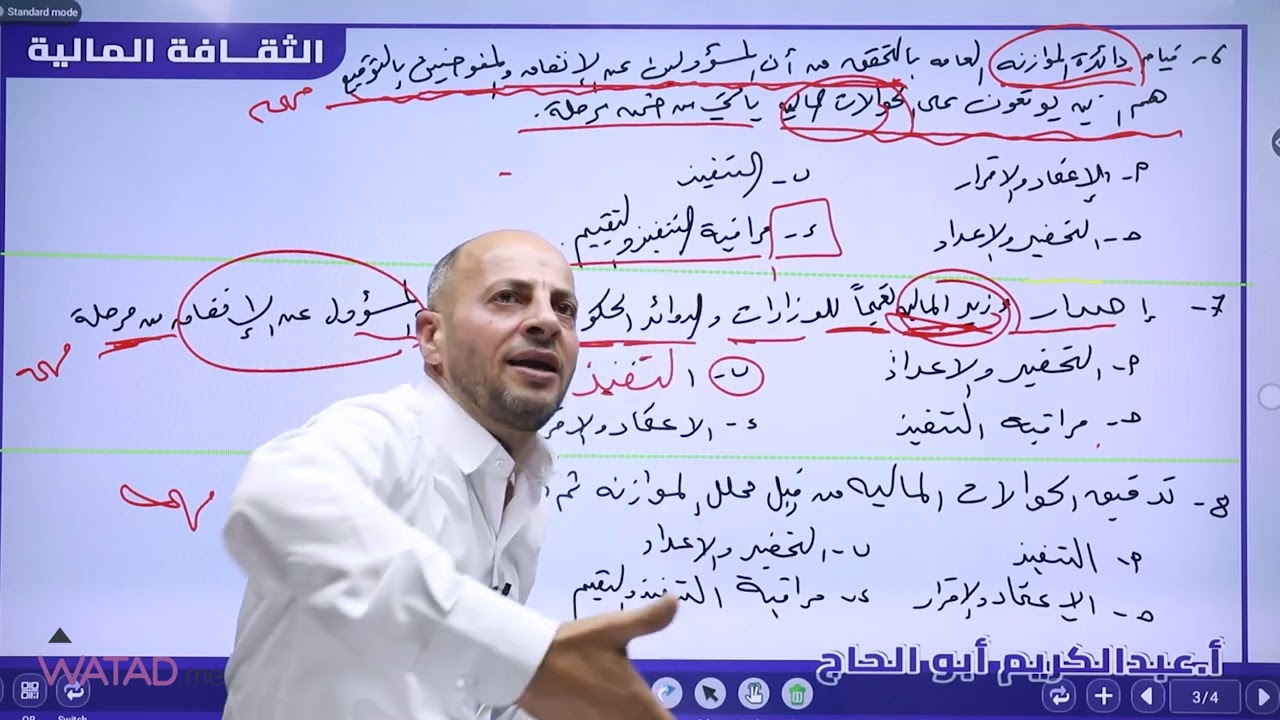 Standard mode
الثقافة المالية
6- قيام دائرة الموازنه العامه بالتحقق من أن المسؤولين عن الإنفاق والمفوضين بالتوقيع
هم الذين يوقعون على الحوالات المالية يأتي من ضمن مرحلة.
مهم
م- الإعتماد والاقرار
ب- التنفيذ
ح- التحضير والإعداد
د- مراقبة التنفيذ والتقييم.
7- إصدار وزير المالية تعميماً للوزارات والدوائر المسؤول عن الإنفاق من مرحلة
م- التحضير والإعداد
ب- التنفيذ
ح- مراقبة التنفيذ
د-
8- تدقيق الحوالات المالية من قبل محلل الموازنه ثم
م- التنفيذ
ب- التحضير والإعداد
ح- الإعتماد والإقرار
د- مراقبة التنفيذ والتقييم
أ.عبدالكريم أبو الحاج
WATAD.me
3/4
QR
Switch